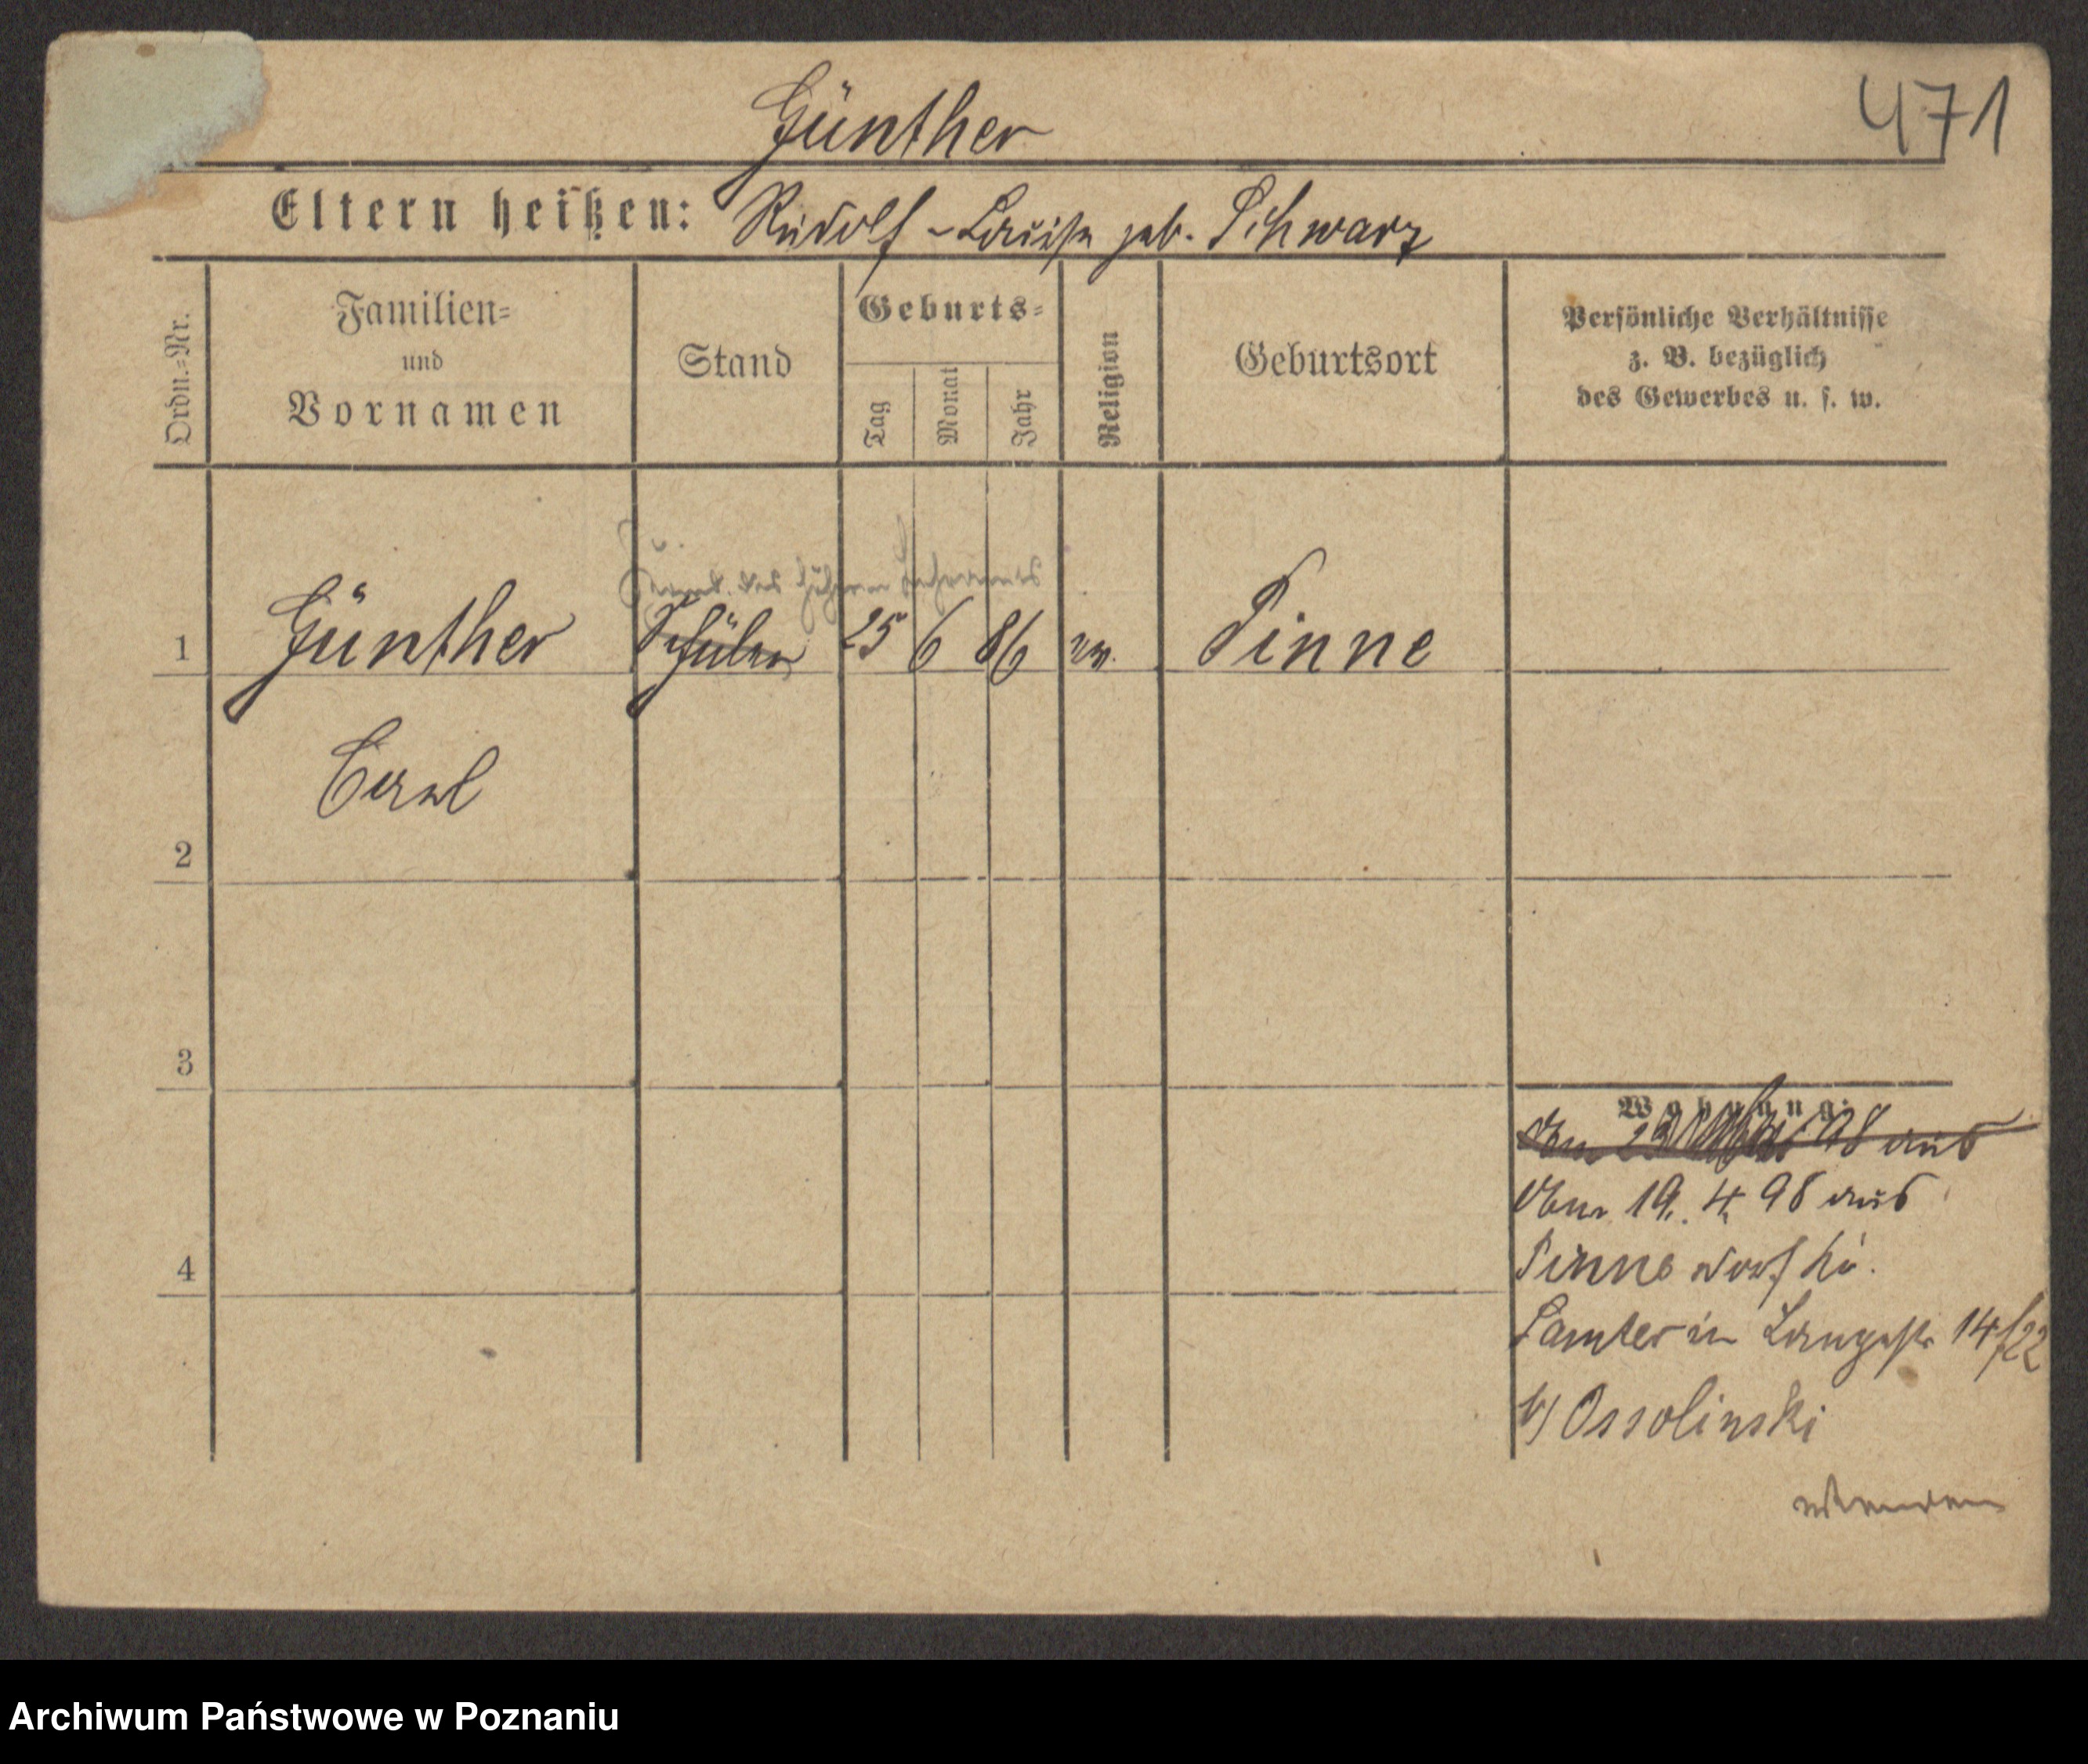 Günther
471
Eltern heißen: Rudolf – Louise geb. Schwarz
Ordn.=Nr.
Familien=
und
Vornamen
Stand
Geburts=
Tag
Monat
Jahr
Religion
Geburtsort
Persönliche Verhältnisse
z. B. bezüglich
des Gewerbes u. s. w.
des höheren Lehramts
1 Günther Schüler 25 6 86 ev. Pinne
Carl
2
3
Wohnung:
98 aus
Vom 19. 4. 98 aus
4
Pinne
Samter in Langestr 14/22
b/ Ossolinski
wenden
Archiwum Państwowe w Poznaniu